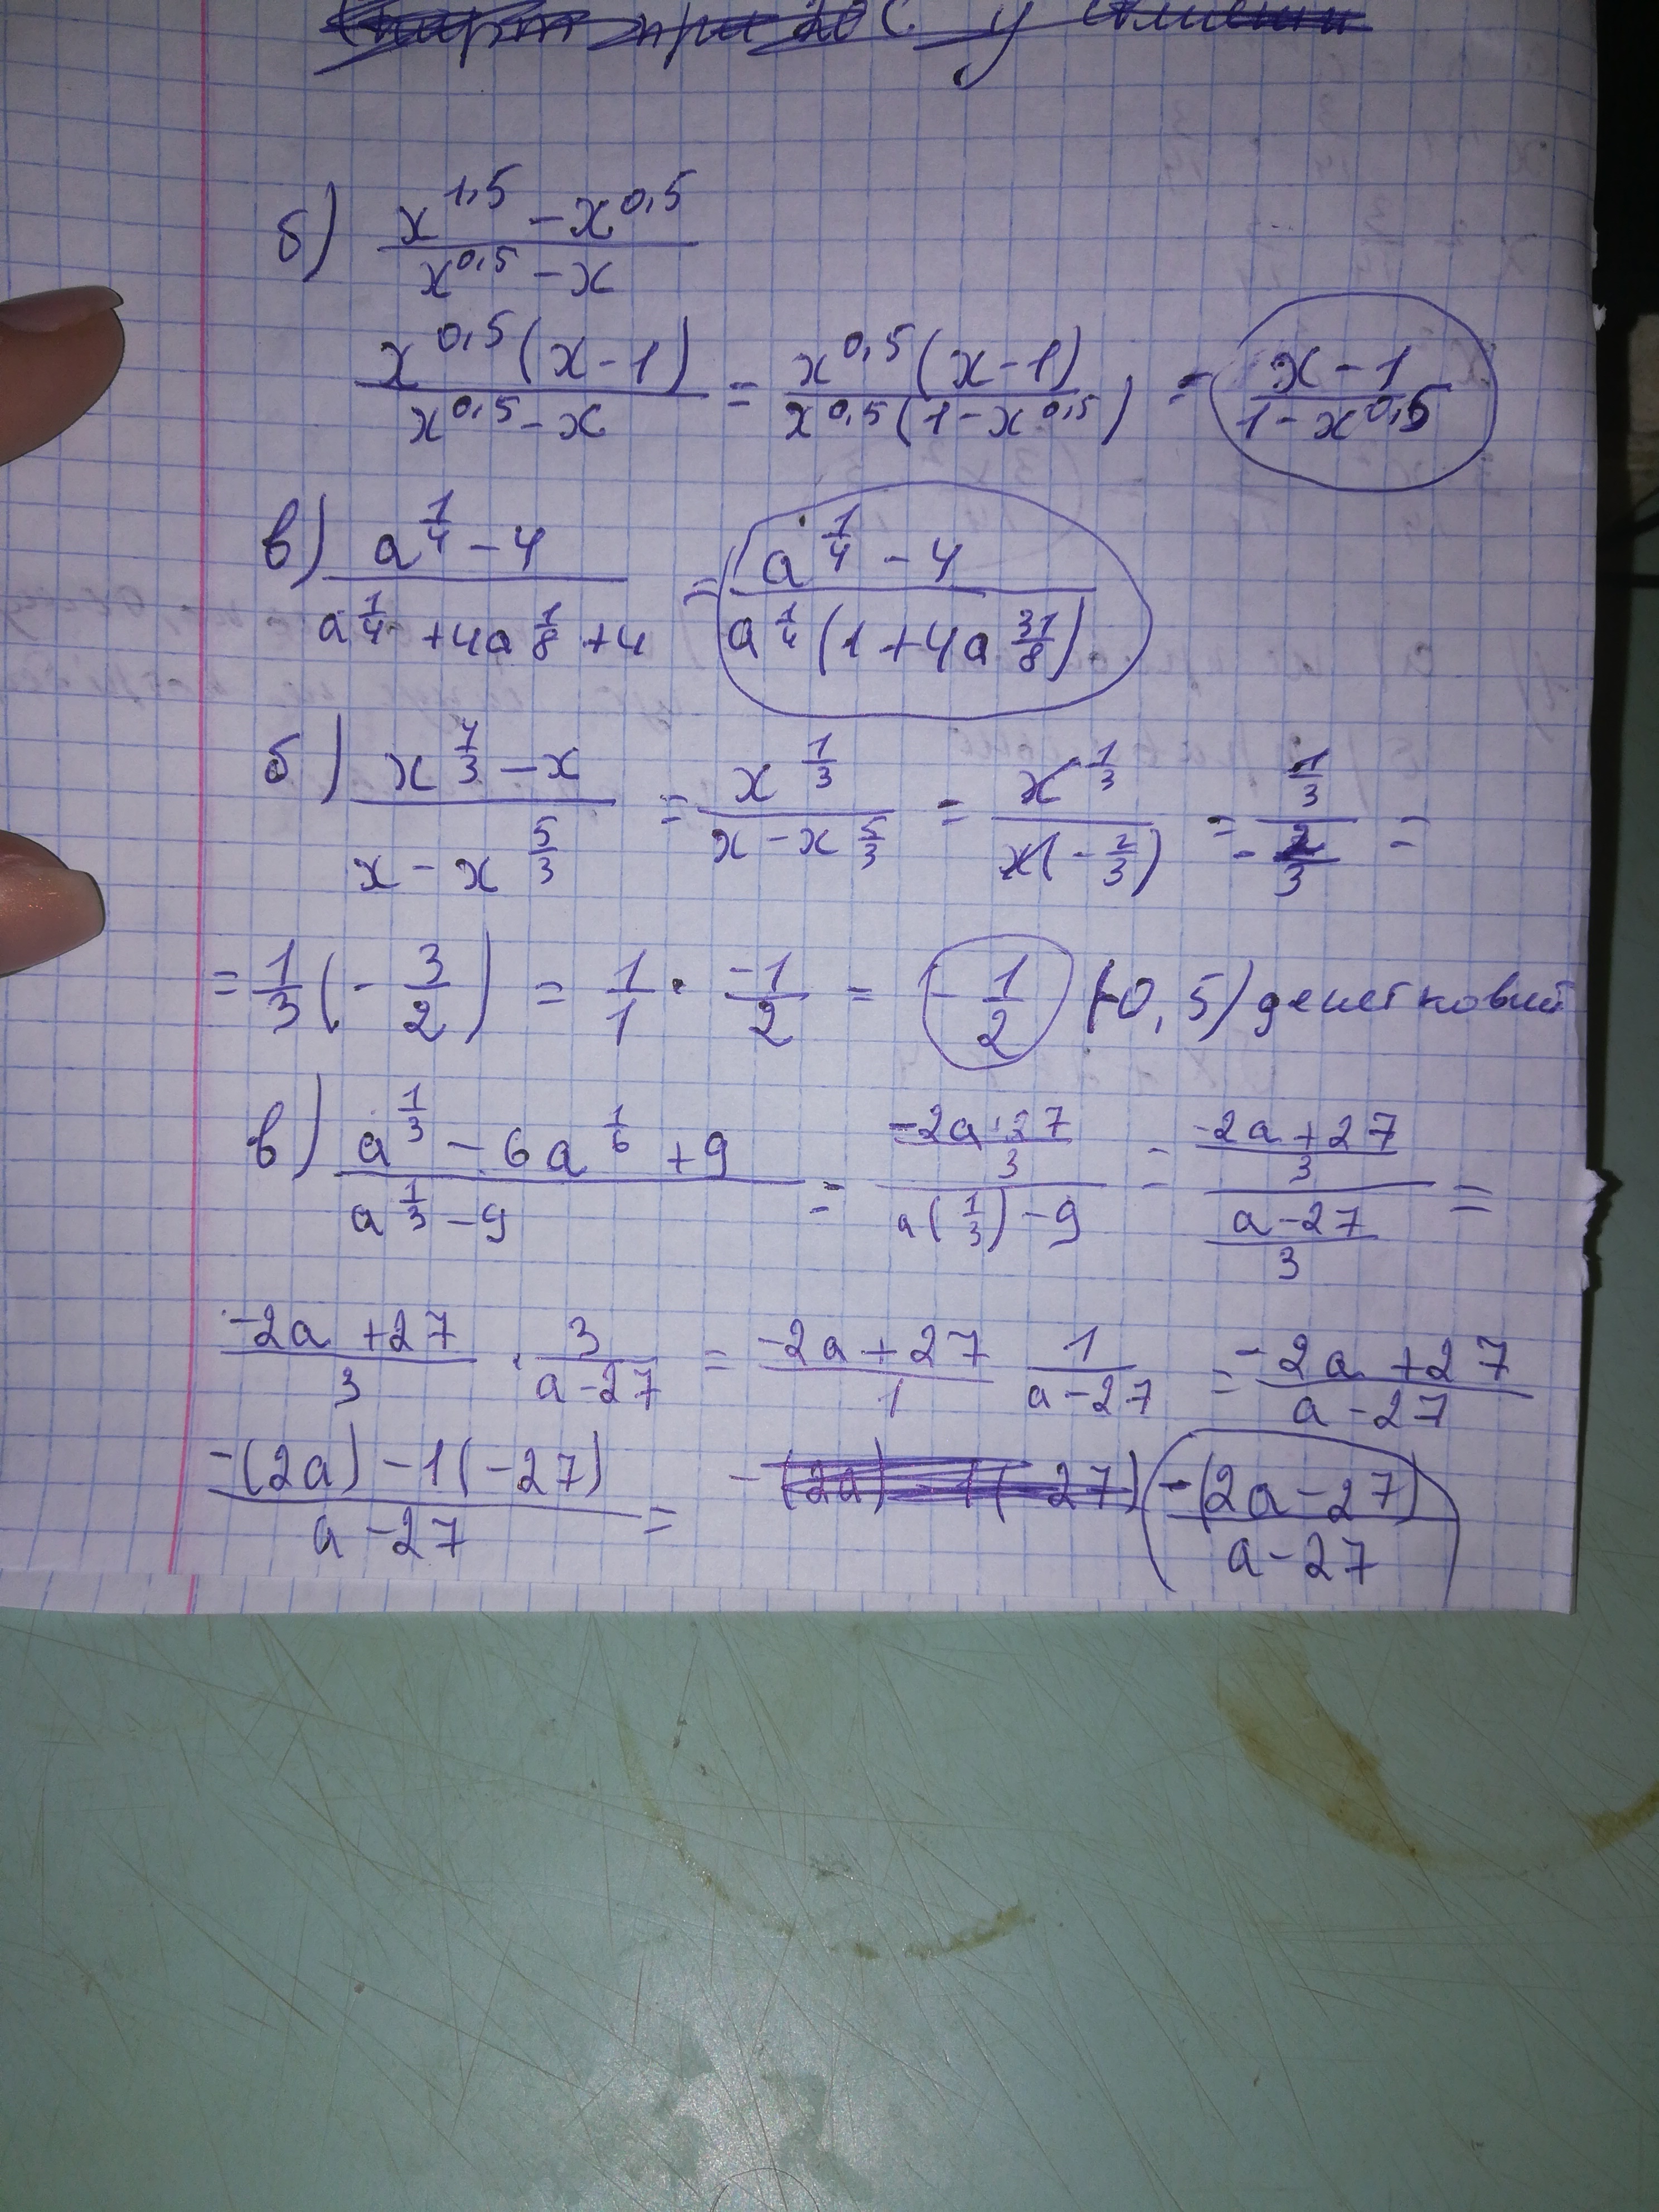 при 20 С. у
б) (x^1,5 - x^0,5)/(x^0,5 - x)
(x^0,5(x-1))/(x^0,5 - x) = (x^0,5(x-1))/(x^0,5(1-x^0,5)) = (x-1)/(1-x^0,5)
в) (a^(1/4) - 4)/(a^(1/4) + 4a^(1/8) + 4) = (a^(1/4) - 4)/(a^(1/4)(1 + 4a^(31/8)))
б) (x^(4/3) - x)/(x - x^(5/3)) = (x^(1/3))/(x - x^(5/3)) = (x^(1/3))/(x(-2/3)) = (1/3)/(-2/3) =
= 1/3(-3/2) = 1/1 · -1/2 = -1/2 (-0,5)
в) (a^(1/3) - 6a^(1/6) + 9)/(a^(1/3) - 9) = ((-2a+27)/3)/(a(1/3) - 9) = ((-2a+27)/3)/((a-27)/3) =
(-2a+27)/3 · 3/(a-27) = (-2a+27)/1 1/(a-27) = (-2a+27)/(a-27)
(-(2a)-1(-27))/(a-27) = -(2a)-1(-27) (-(2a-27))/(a-27)